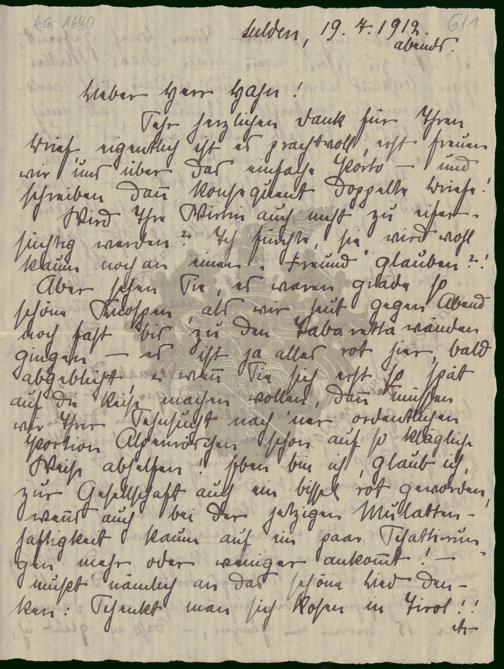 AG 1640
6/1
Sulden, 19.7.1912.
abends.
Lieber Herr Hahn!
Sehr herzlichen Dank für Ihren
Brief, eigentlich ist es prachtvoll, erst freuen
wir uns über das einfache Porto – und
schreiben dann konsequent doppelte Briefe!
Wird Ihre Wirtin auch nicht zu eifer-
süchtig werden? Ich fürchte, sie wird wohl
kaum noch an einen „Freund“ glauben?!
Aber sehen Sie, es waren grade so
schöne Knospen, als wir heut gegen Abend
noch fast bis zu den Tabarettawänden
gingen – es ist ja alles rot hier, bald
abgeblüht, u. wenn Sie sich erst so spät
auf die Reise machen wollen, dann müssen
wir Ihrer Sehnsucht nach 'ner ordentlichen
Portion Alpenröschen schon auf so klägliche
Weise abhelfen! Eben bin ich, glaub ich,
zur Gesellschaft auch ein bissel rot geworden,
wenns auch bei der jetzigen Mulatten-
haftigkeit kaum auf ein paar Schattierun-
gen mehr oder weniger ankommt! –
mußt nämlich an das schöne Lied den-
ken: Schenkt man sich Rosen in Tirol!!